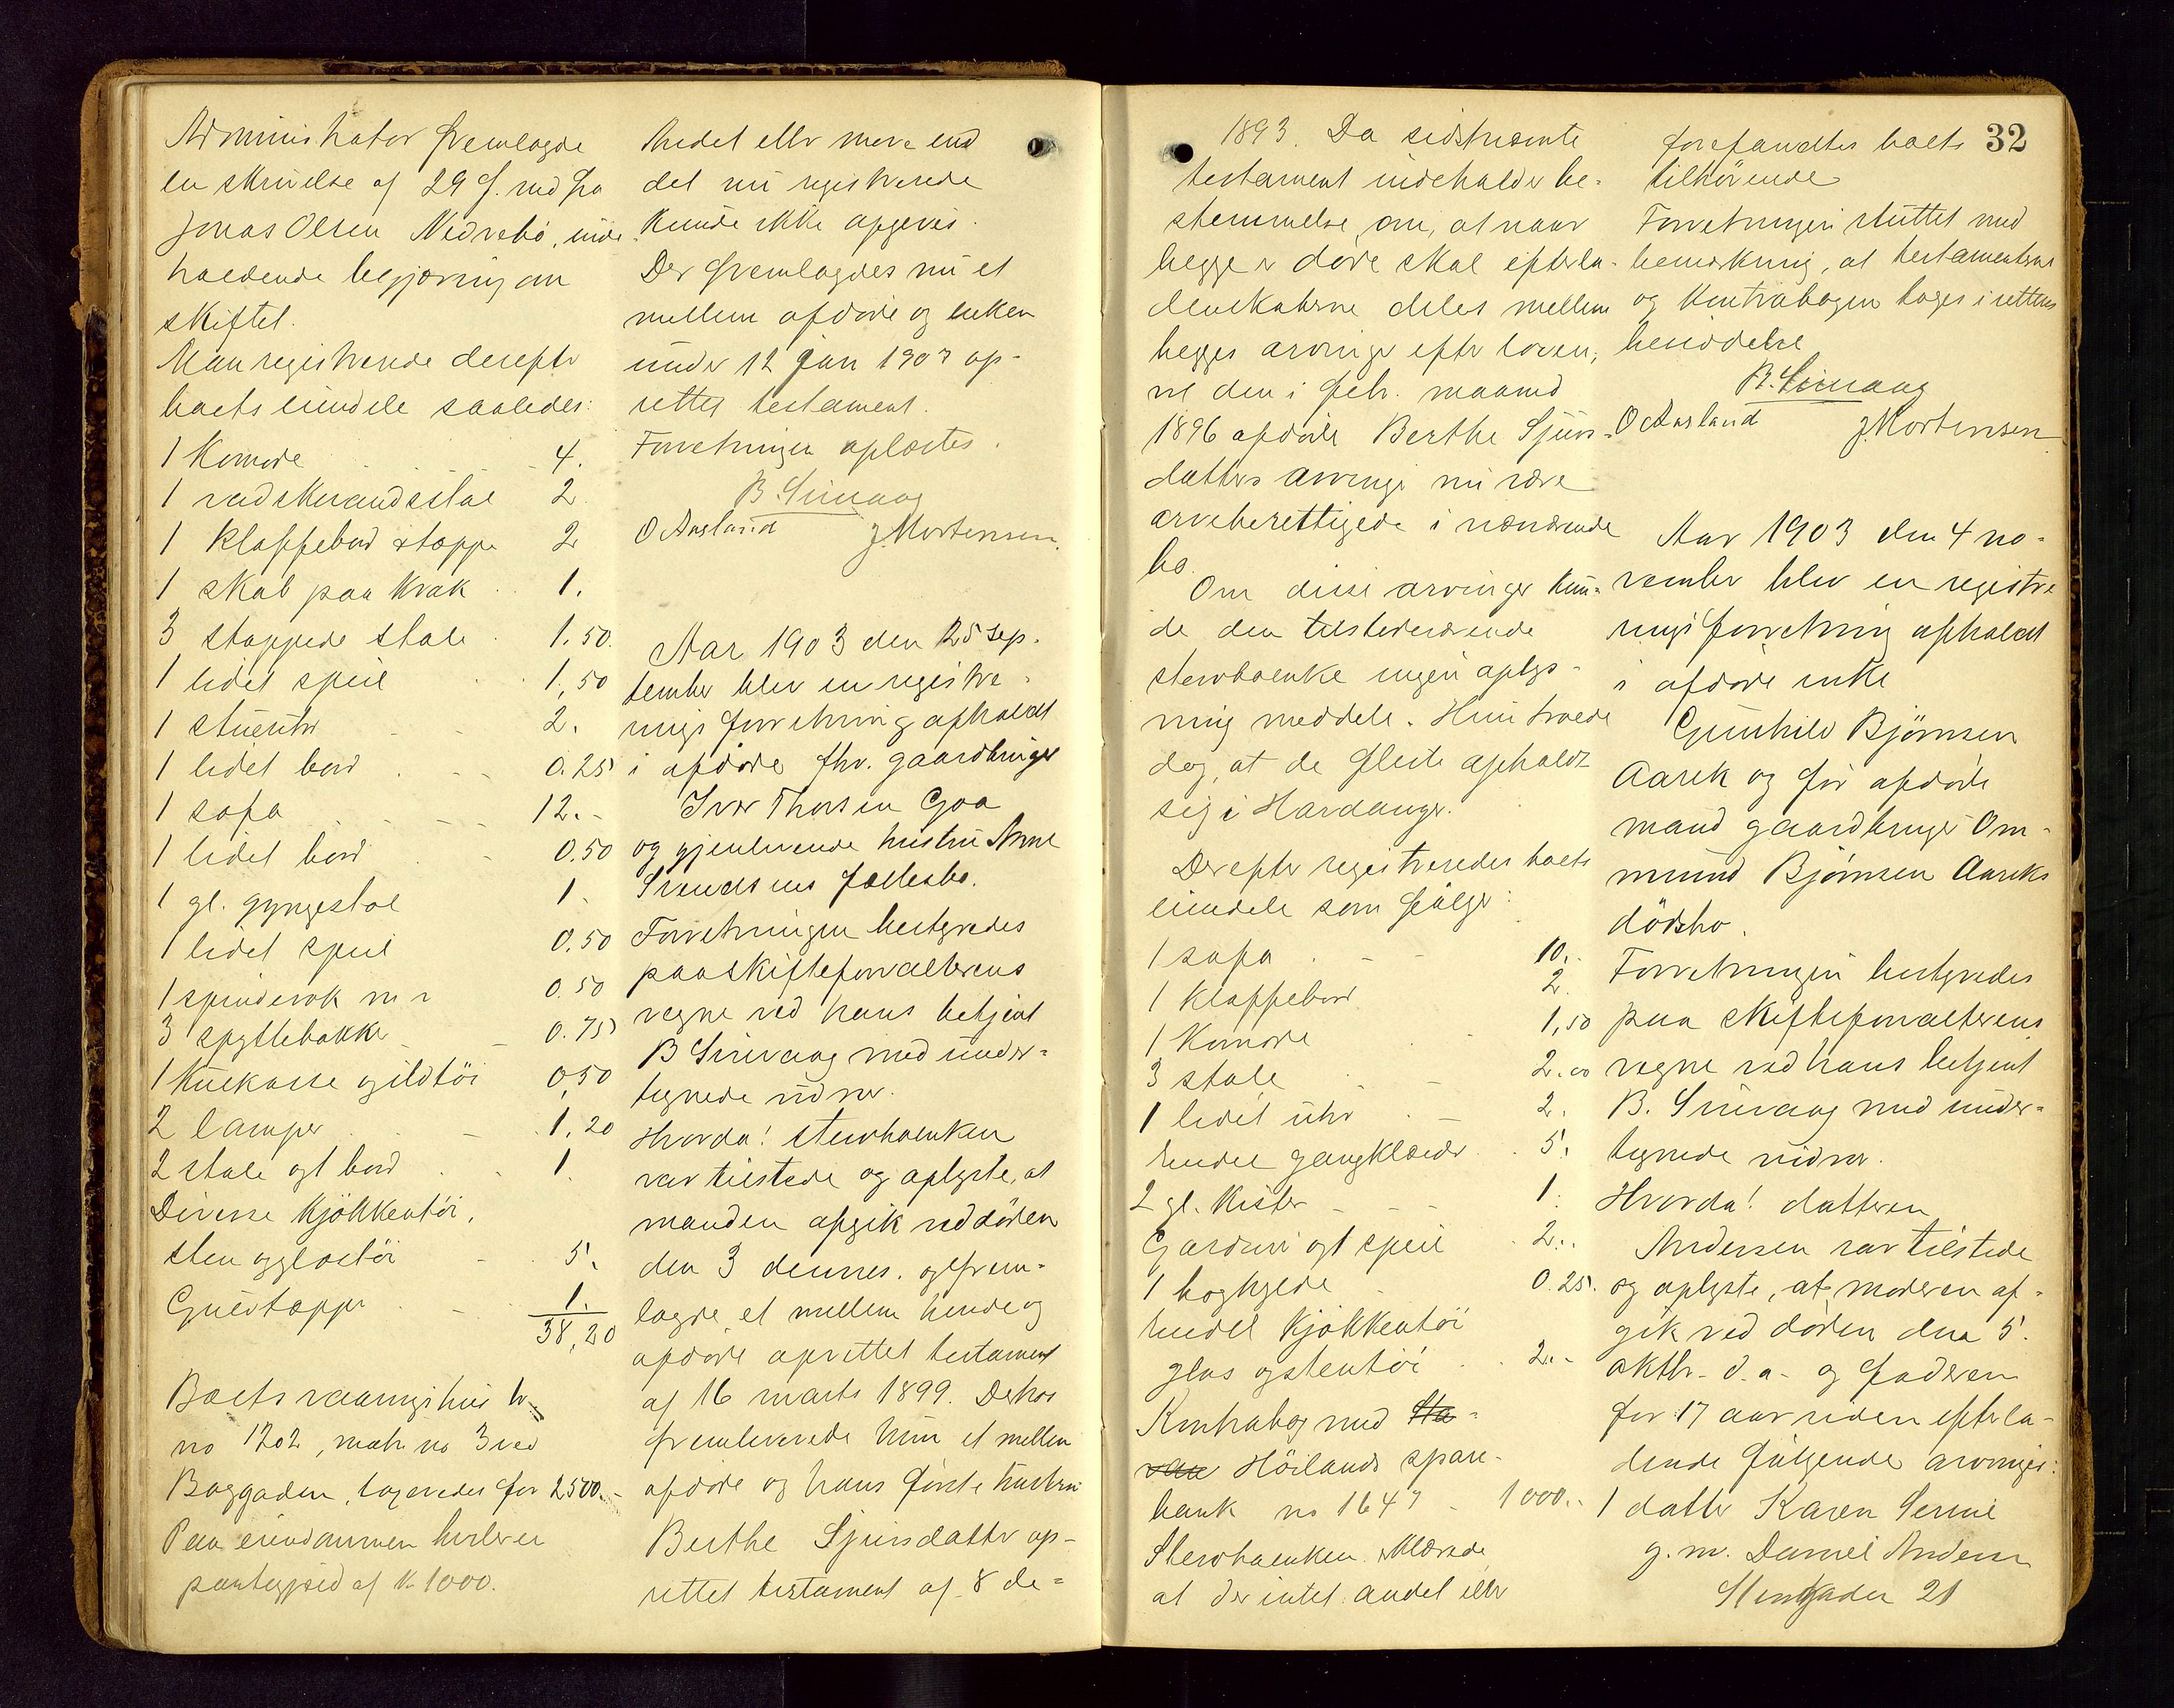 Administrator fremlagde
en skrivelse af 29 f. md fra
Jonas Olsen Nedrebö, inde-
holdende begjæring om
skiftet.
Man registrerede derefter
boets eiendele saaledes:
1 Komode 4.
1 vadskevandsstol 2
1 klappebord & toppe 2
1 skab paa krak 1.
3 stoppede stole 1.50.
1 lidet speil 1,50
1 stueuhr 2.
1 lidet bord 0.25
1 sofa 12.-
1 lidet bord 0.50
1 gl. gyngestol 1.
1 lidet speil 0.50
1 spinderok m v 0.50
3 spyttebakker 0.75
1 kulkasse og ildtöi 0,50
2 lamper 1,20
2 stole og 1 bord 1.
Diverse kjökkentöi,
sten og glastöi 5.
Gulvtæpper 1.
38,20
Boets vaaningshus br
no 1202, matr no 3 ved
Baggaden, taxeredes for 2500.-
Paa eiendommen hviler en
pantegjæld af Kr 1000.
Andet eller mere end
det nu registrerede
kunde ikke opgives.
Der fremlagdes nu et
mellem afdöde og enken
under 12 jan 1907 op-
rettet testament.
Forretningen oplæstes.
B Simaag
O Aasland J. Mortensen.
Aar 1903 den 25 sep-
tember blev en registre-
rings forretning afholdt
i afdöde fhv. gaardbruger
Iver Thorsen Goa
og gjenlevende hustru Anne
Svendsens fællesbo.
Forretningen bestyredes
paa skifteforvalterens
vegne ved hans betjent
B Simaag med under-
tegnede vidner.
Hvorda! Stervboenken
var tilstede og oplyste, at
manden afgik ved döden
den 3 dennes. og frem-
lagde et mellem hende og
afdöde oprettet testament
af 16 marts 1899. Derhos
fremleverede hun et mellem
afdöde og hans første hustru
Berthe Sjursdatter op-
rettet testament af 8 de-
32
1893. Da sidstnævnte
testament indeholder be-
stemmelse om, at naar
begge er döde skal efterla-
denskaberne deles mellem
begges arvinger efter loven,
vil den i febr. maaned
1896 afdöde Berthe Sjurs-
datters arvinger nu være
arveberettigede i nærværende
bo.
Om disse arvinger kun-
de den tilstedeværende
stervboenke ingen oplys-
ning meddele. Hun troede
dog, at de fleste opholdt
sig i Hardanger.
Derefter registreredes boets
eiendele som fölger:
1 sofa 10.-
1 klappebord 2.
1 Komode 1,50
3 stole 2.00
1 lidet uhr 2.
hendel gangklæder 5.
2 gl. kister 1.
Gardiner og 1 speil 2..
1 boghylde 0.25.
hendel kjökkentöi
glas og stentöi 2.-
Kontrabog med Sta-
van Höilands spare-
bank no 1647 1000.-
Stervboenken erklærede
at der intet andet eller
forefandtes boets
tilhörende
Forretningen sluttet med
bemærkning, at testamenterne
og kontrabogen toges i rettens
besiddelse
B. Simaag
O Aasland J. Mortensen
Aar 1903 den 4 no-
vember blev en registre
rings forretning afholdt
i afdöde enke
Gunhild Bjørnsen
Aarek og før afdöde
mand gaardbruger Om-
mund Bjørnsen Aareks
dödsbo.
Forretningen bestyredes
paa skifteforvalterens
vegne ved hans betjent
B. Simaag med under-
tegnede vidner.
Hvorda! datteren
Andersen var tilstede
og oplyste, at moderen af-
gik ved döden den 5.
oktbr. d. a. og faderen
for 17 aar siden efterla-
dende følgende arvinger:
1 datter Karen Serine
g. m. Daniel Andersen
Stengaden 21